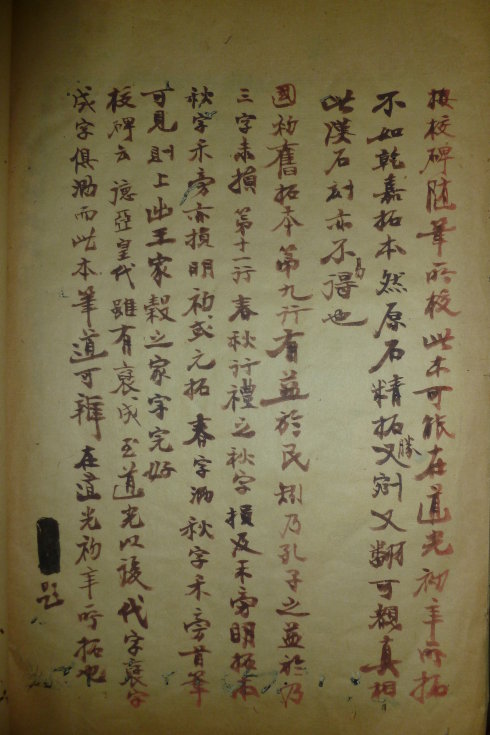 按校碑随笔所校此本可能在道光初年所拓
不如乾嘉拓本然原石精拓又胜翻可窥真相
此汉石刻亦不易得也
國初舊拓本第九行有益於民矧乃孔子之益於
三字未損第十一行春秋行禮之秋字損及禾旁明拓本
秋字禾旁亦損明初或元拓春字泐秋字禾旁首筆
可見則上出王家穀之家字完好
校碑云德亞皇代雖有褒成至道光以後代字褒字
成字俱泐而此本筆道可辨在道光初年所拓也
題